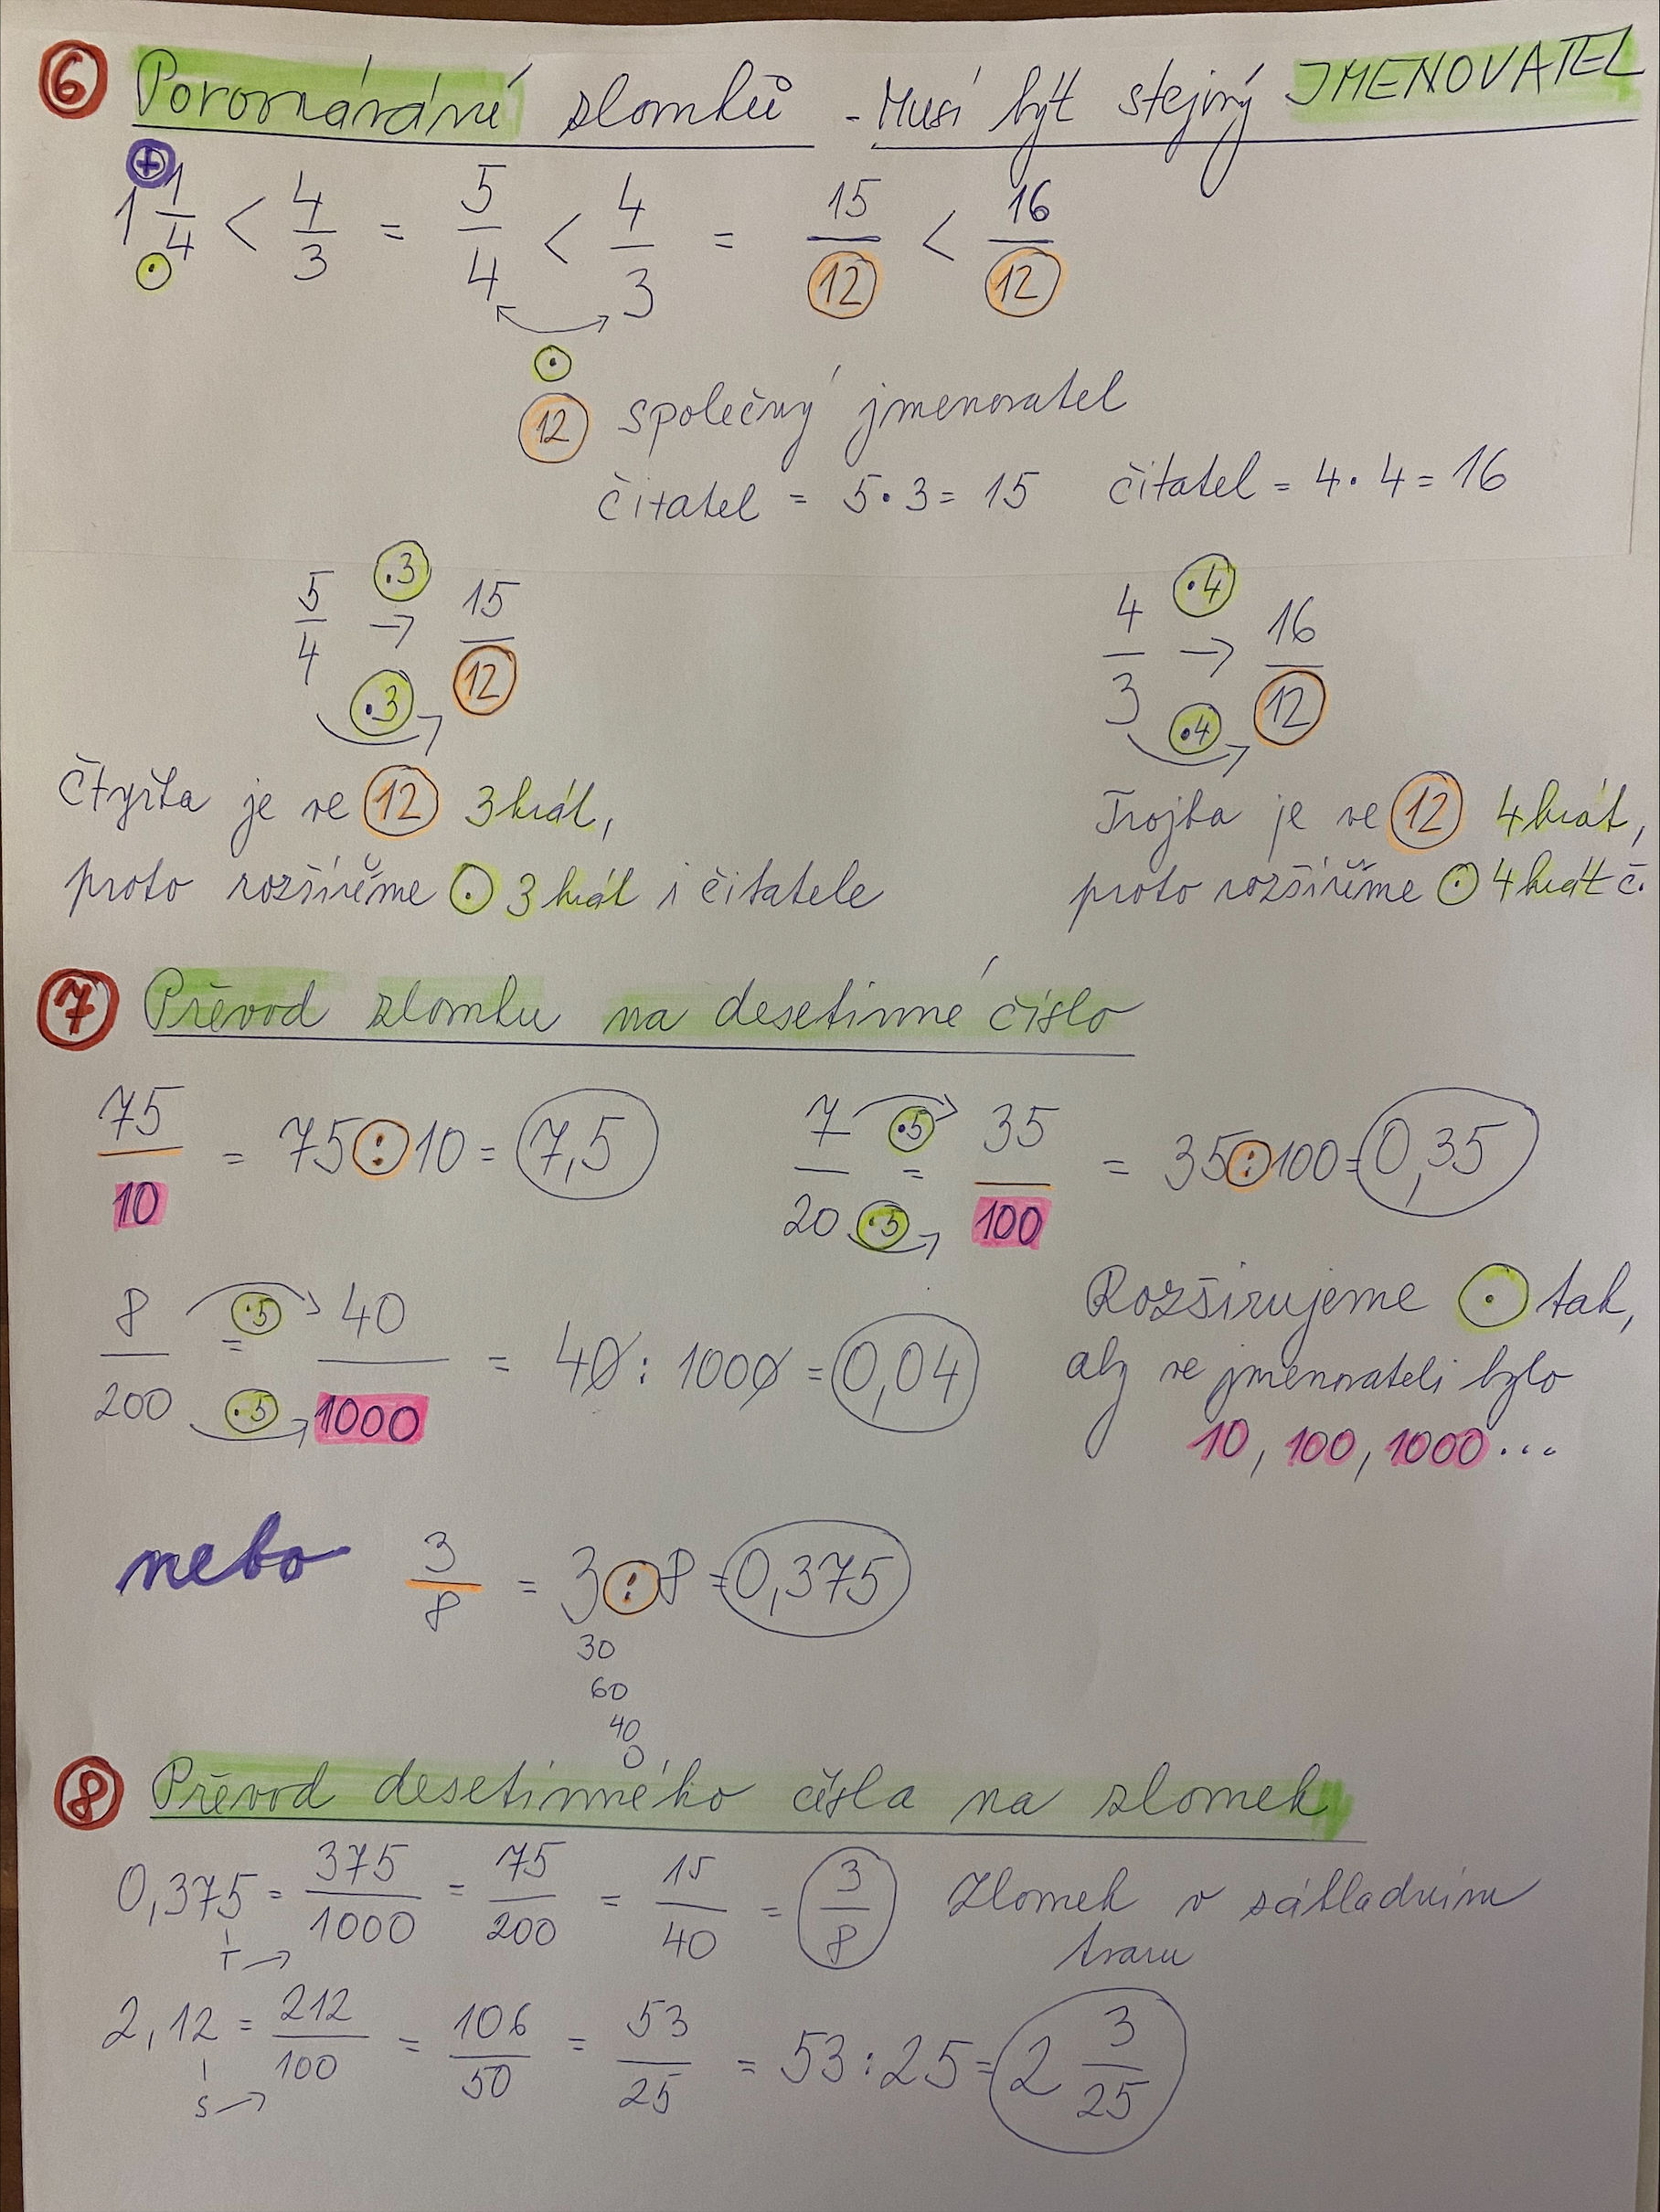 6 Porovnávání zlomků - Musí být stejný JMENOVATEL
+
1 1/4 < 4/3 = 5/4 < 4/3 = 15/12 < 16/12
·
·
12 společný jmenovatel
čitatel = 5·3 = 15 čitatel = 4·4 = 16
5/4 ·3 → ·3 15/12 4/3 ·4 → ·4 16/12
Čtyřka je ve 12 3krát, Trojka je ve 12 4krát,
proto rozšíříme · 3krát i čitatele proto rozšíříme · 4krát č.
7 Převod zlomku na desetinné číslo
75/10 = 75 : 10 = 7,5 7/20 ·5 = ·5 35/100 = 35 : 100 = 0,35
8/200 ·5 = ·5 40/1000 = 40 : 1000 = 0,04
Rozšiřujeme · tak,
aby ve jmenovateli bylo
10, 100, 1000...
nebo 3/8 = 3 : 8 = 0,375
30
60
40
0
8 Převod desetinného čísla na zlomek
0,375 = 375/1000 = 75/200 = 15/40 = 3/8 Zlomek v základním
T → tvaru
2,12 = 212/100 = 106/50 = 53/25 = 53 : 25 = 2 3/25
S →